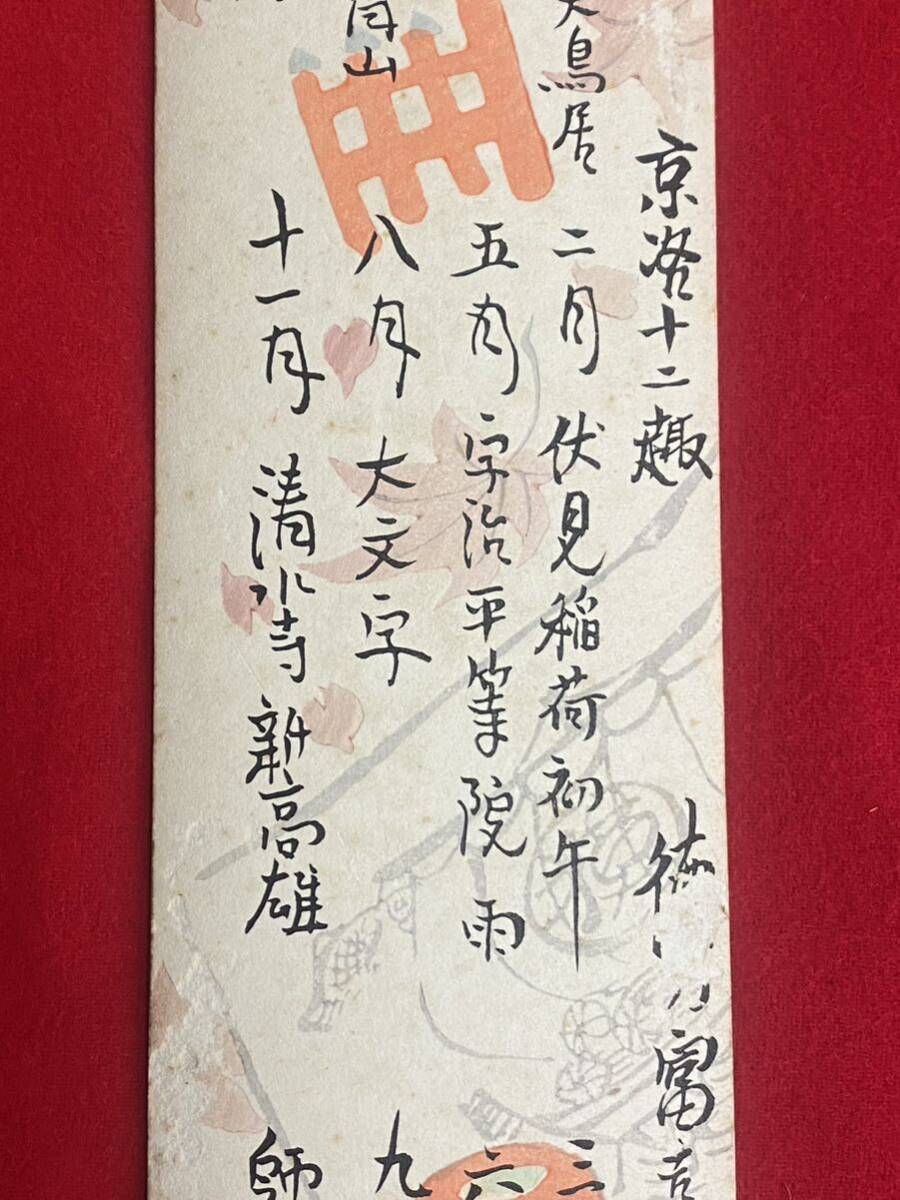 京洛十二趣
徳 富吉
大鳥居 二月 伏見稲荷初午 三
五月 宇治平等院雨 六
山 八月 大文字 九
十一月 清水寺 新高雄 師